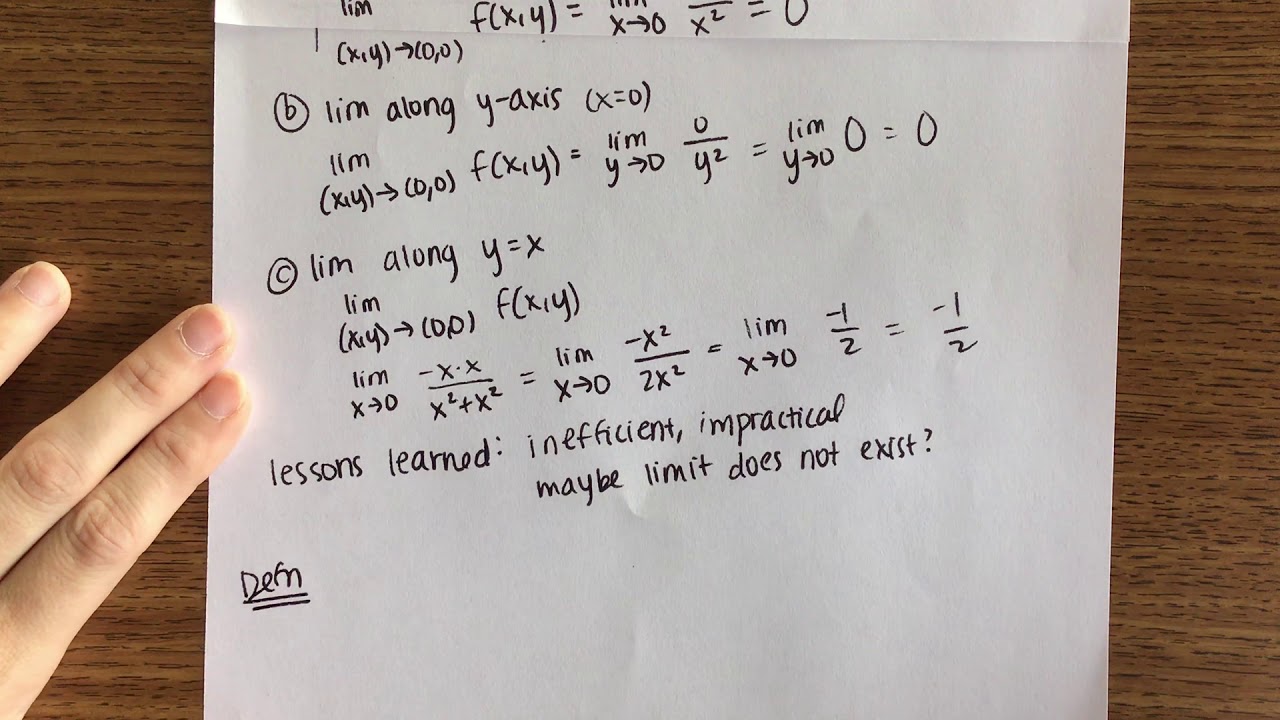 lim f(x,y) = lim / x² = 0
(x,y)→(0,0) x→0
ⓑ lim along y-axis (x=0)
lim (x,y)→(0,0) f(x,y) = lim y→0 0/y² = lim y→0 0 = 0
ⓒ lim along y=x
lim (x,y)→(0,0) f(x,y)
lim x→0 -x·x/x²+x² = lim x→0 -x²/2x² = lim x→0 -1/2 = -1/2
lessons learned: inefficient, impractical
maybe limit does not exist?
Defn